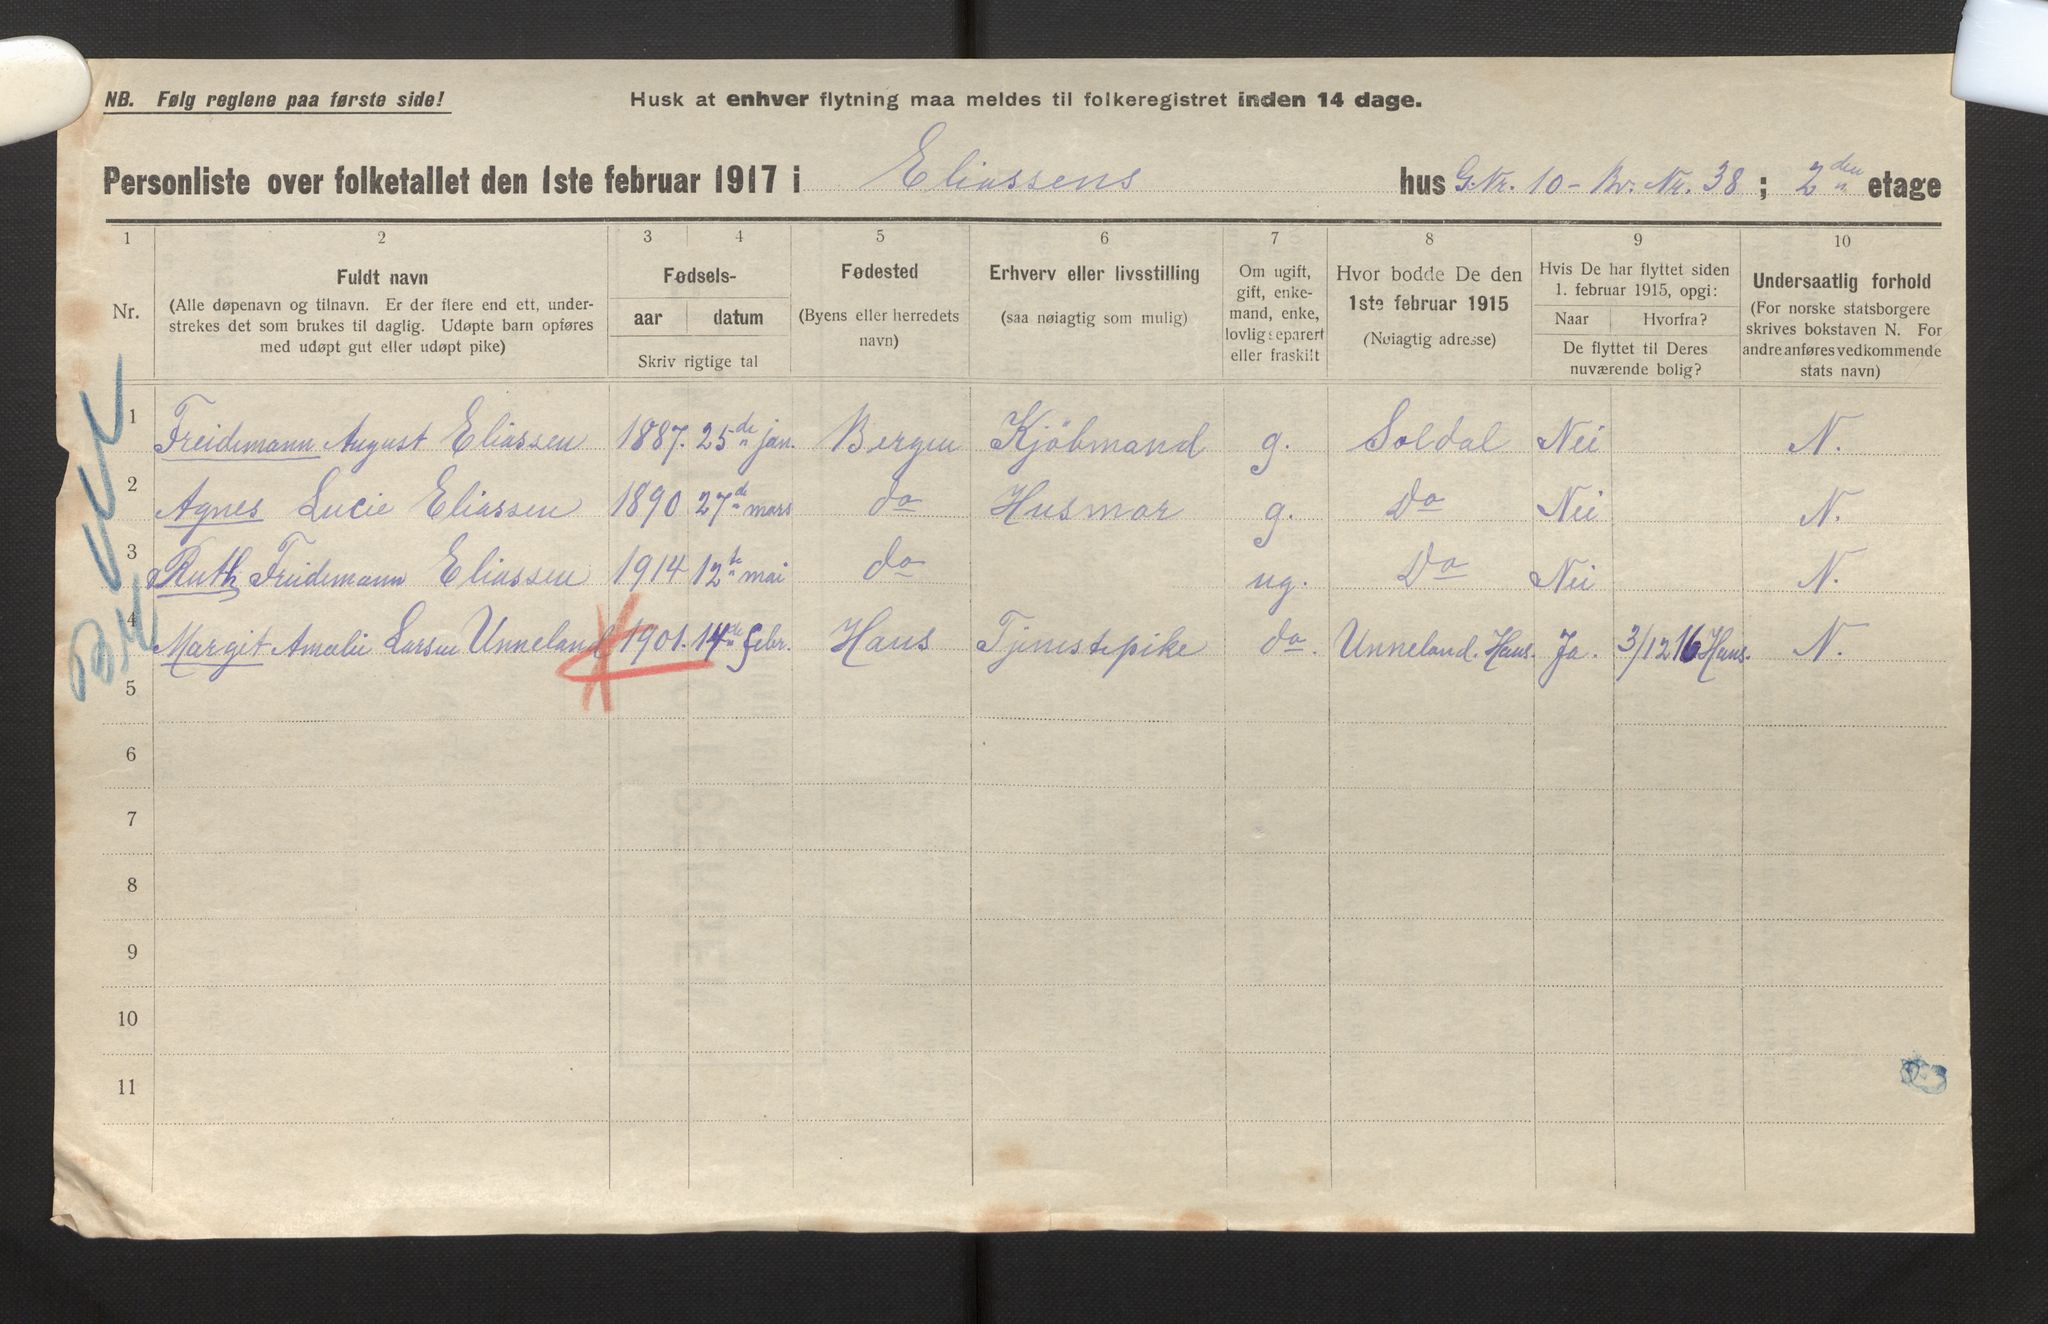 NB. Følg reglene paa første side!
Husk at enhver flytning maa meldes til folkeregistret inden 14 dage.
Personliste over folketallet den 1ste februar 1917 i Eliassens hus G.Nr. 10 - Br. Nr. 38 ; 2den etage
1 2 3 4 5 6 7 8 9 10
Nr.
Fuldt navn
(Alle døpenavn og tilnavn. Er der flere end ett, under-
strekes det som brukes til daglig. Udøpte barn opføres
med udøpt gut eller udøpt pike)
Fødsels-
aar datum
Skriv rigtige tal
Fødested
(Byens eller herredets
navn)
Erhverv eller livsstilling
(saa nøiagtig som mulig)
Om ugift,
gift, enke-
mand, enke,
lovlig separert
eller fraskilt
Hvor bodde De den
1ste februar 1915
(Nøiagtig adresse)
Hvis De har flyttet siden
1. februar 1915, opgi:
Naar Hvorfra?
De flyttet til Deres
nuværende bolig?
Undersaatlig forhold
(For norske statsborgere
skrives bokstaven N. For
andre anføres vedkommende
stats navn)
1 Freidemann August Eliassen 1887. 25de jan. Bergen Kjöbmand g. Soldal Nei N.
2 Agnes Lucie Eliassen 1890 27de mars do Husmor g. Do Nei N.
3 Ruth Freidemann Eliassen 1914 12te mai do ug. Do Nei N.
4 Margit Amalie Larsen Unneland 1901. 14de febr. Haus Tjenestepike do. Unneland. Haus. Ja. 3/12 16 Haus. N.
5
6
7
8
9
10
11